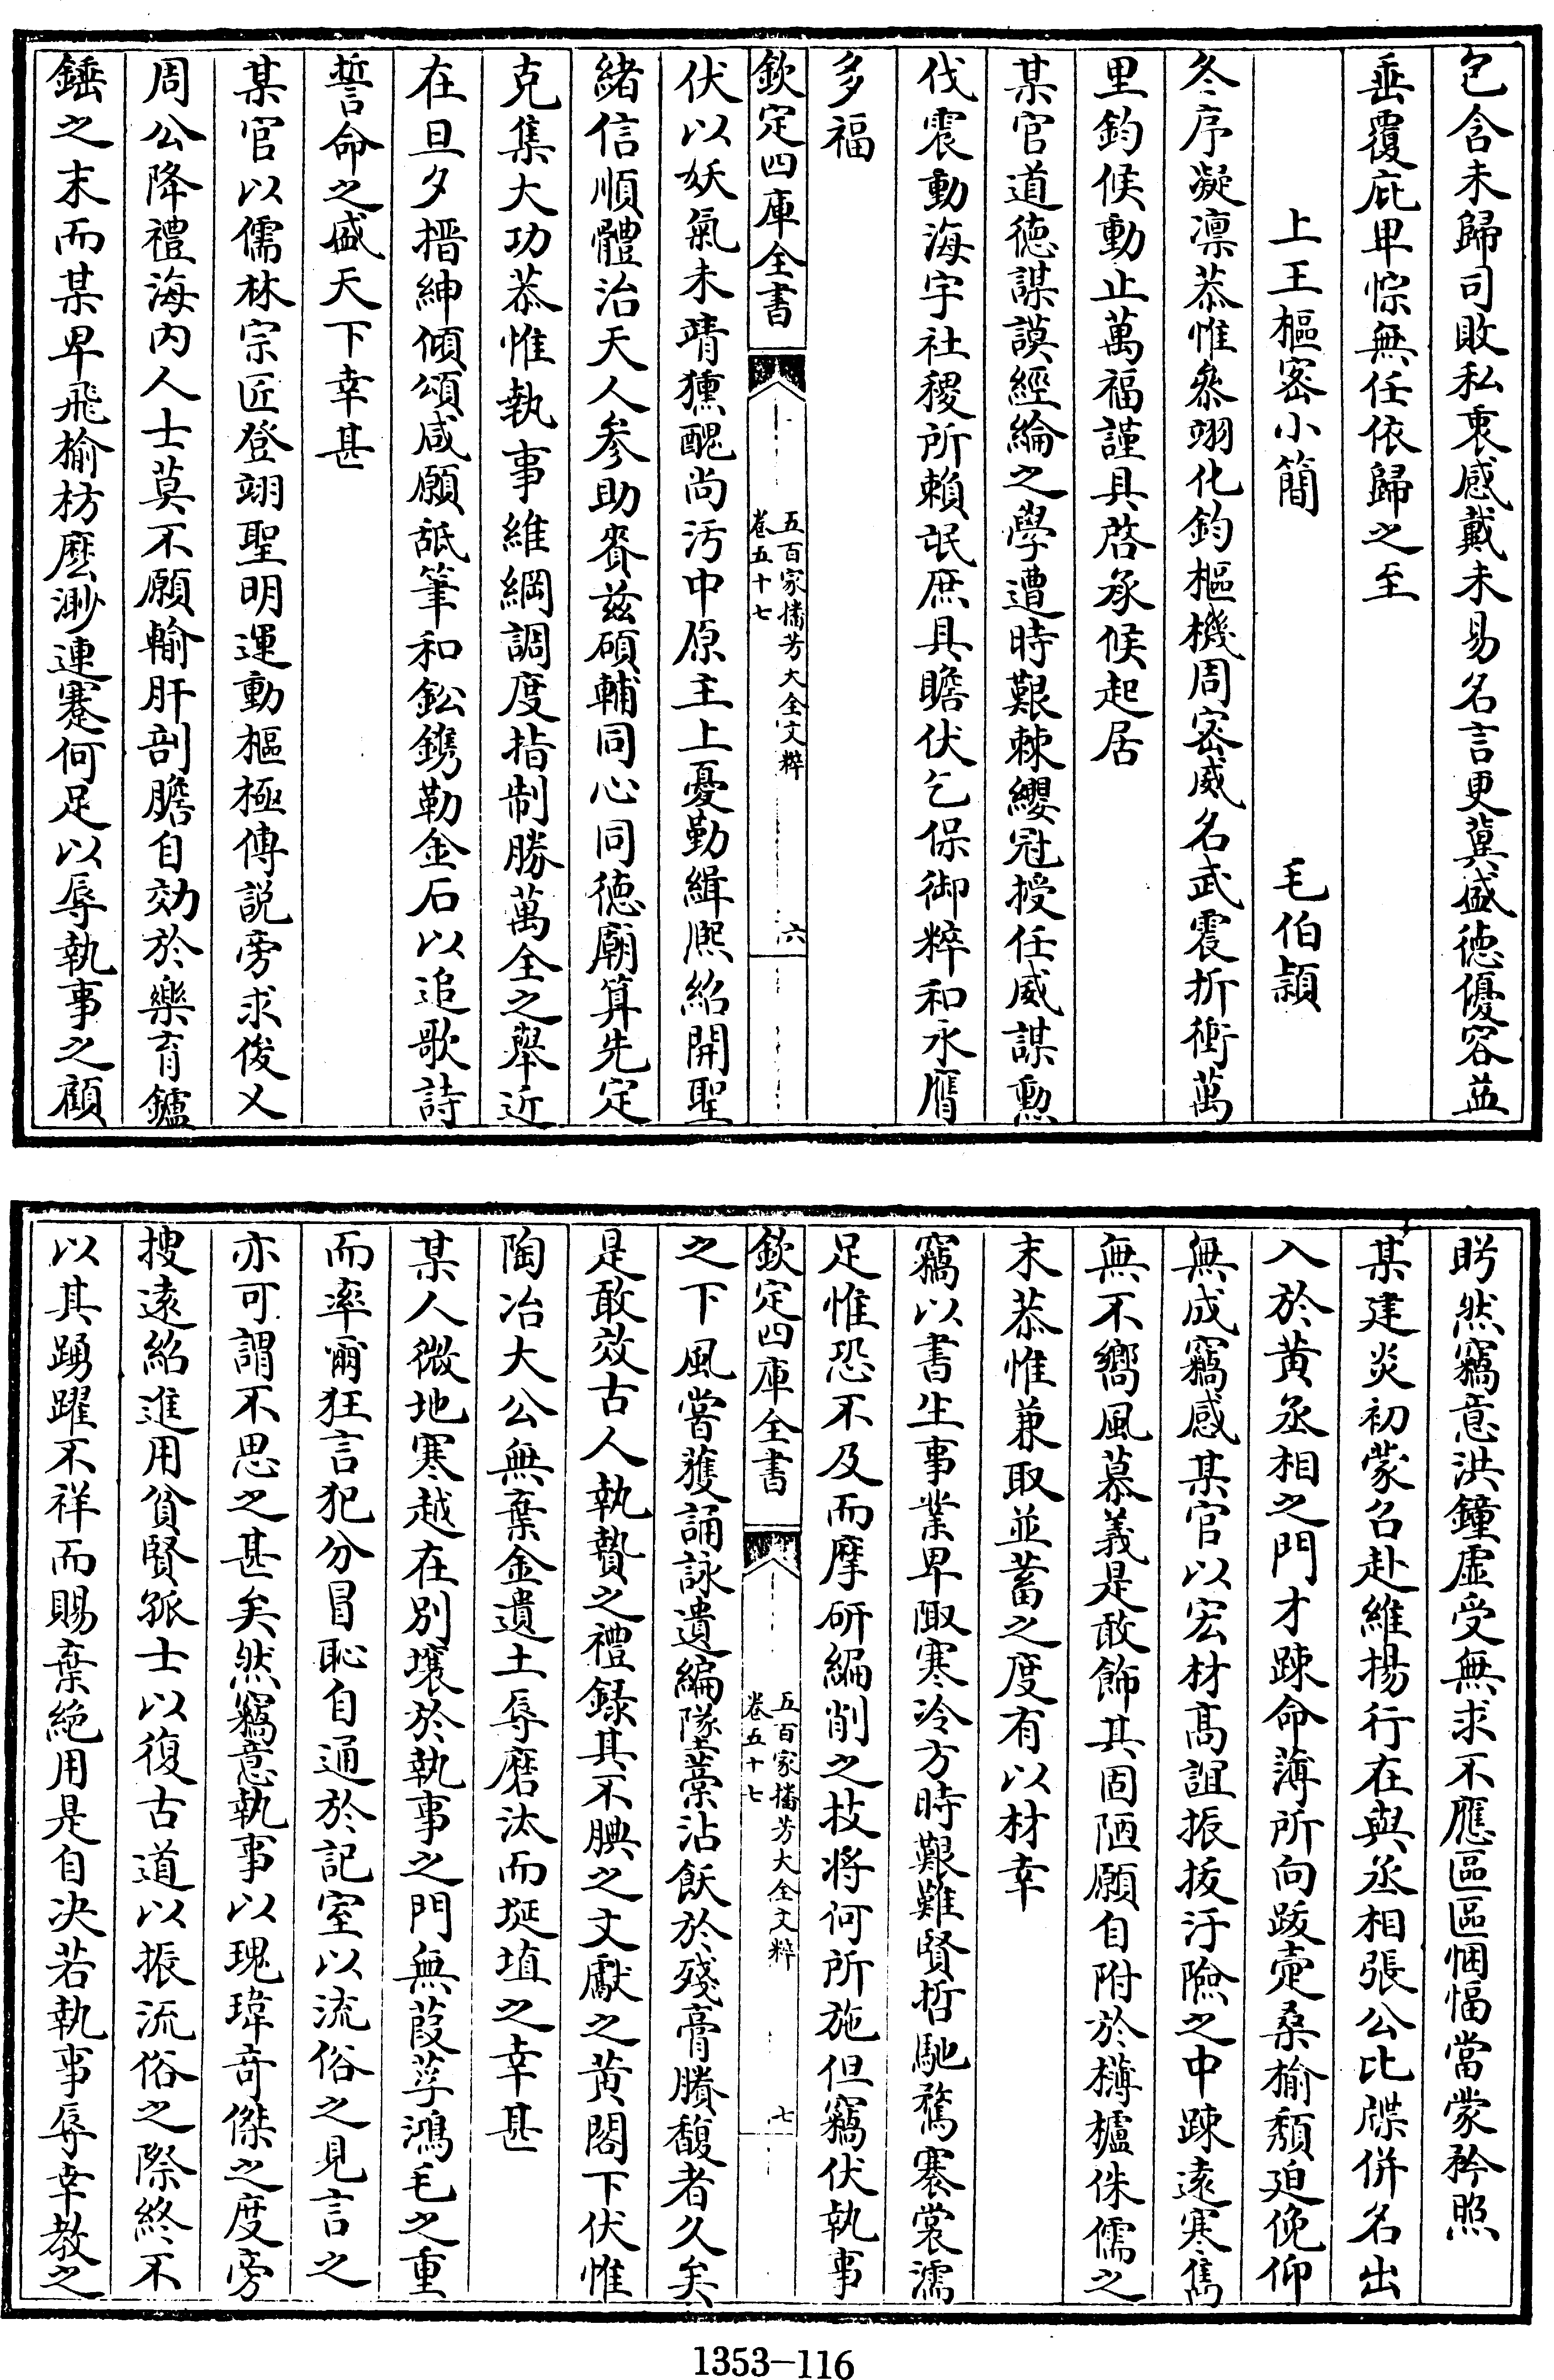 包含未歸司敗私衷感戴未易名言更冀盛德優容益
垂覆庇卑悰無任依歸之至
上王樞密小簡　毛伯頴
冬序凝凛恭惟叅翊化鈞樞機周密威名武震折衝萬
里鈞候動止萬福謹具啓承候起居
某官道德謀謨經綸之學遭時艱棘纓冠授任威謀勲
伐震動海宇社稷所賴氓庶具瞻伏乞保御粹和永膺
多福
欽定四庫全書　五百家播芳大全文粹　卷五十七　六
伏以妖氣未靖獯醜尚汚中原主上憂勤緝熙紹開聖
緒信順體治天人參助賚兹碩輔同心同德廟算先定
克集大功恭惟執事維綱調度指制勝萬全之舉近
在旦夕搢紳傾頌咸願舐筆和鈆鐫勒金石以追歌詩
誓命之盛天下幸甚
某官以儒林宗匠登翊聖明運動樞極傅説旁求俊乂
周公降禮海内人士莫不願輸肝剖膽自効於樂育鑪
錘之末而某卑飛榆枋麽渺連蹇何足以辱執事之顧
盻然竊意洪鐘虚受無求不應區區悃愊當蒙矜照
某建炎初蒙召赴維揚行在與丞相張公比牒併名出
入於黄丞相之門才踈命薄所向跋疐桑榆頽廹俛仰
無成竊感某官以宏材髙誼振拔汙險之中踈遠寒雋
無不嚮風慕義是敢飾其固陋願自附於欂櫨侏儒之
末恭惟兼取並蓄之度有以材幸
竊以書生事業卑陬寒冷方時艱難賢哲馳騖褰裳濡
足惟恐不及而摩研編削之技將何所施但竊伏執事
欽定四庫全書　五百家播芳大全文粹　卷五十七　七
之下風嘗獲誦詠遺編隊藁沾飫於殘膏賸馥者久矣
是敢效古人執贄之禮録其不腆之文獻之黄閣下伏惟
陶冶大公無棄金遺土辱磨汰而埏埴之幸甚
某人微地寒越在別壤於執事之門無葭莩鴻毛之重
而率爾狂言犯分冒恥自通於記室以流俗之見言之
亦可謂不思之甚矣然竊意執事以瑰瑋奇傑之度旁
搜遠紹進用貧賢孤士以復古道以振流俗之際終不
以其踴躍不祥而賜棄絶用是自决若執事辱幸教之
1353-116